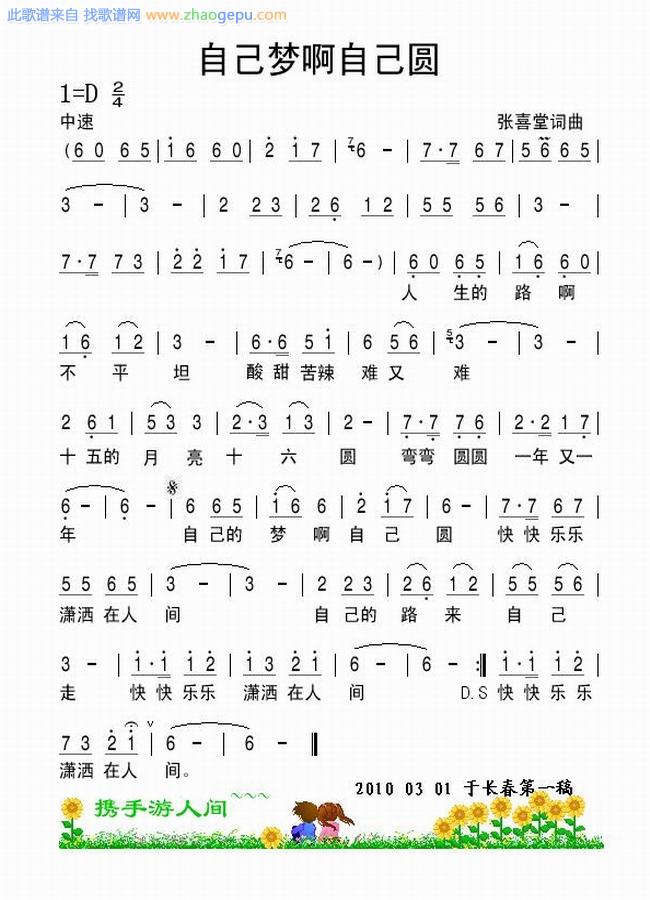 此歌谱来自 找歌谱网 www.zhaogepu.com
自己梦啊自己圆
1=D 2/4
中速 张喜堂词曲
(6 0 6 5 | 1 6 6 0 | 2 1 7 | 7 6 - | 7·7 6 7 | 5 6 6 5 |
3 - | 3 - | 2 2 3 | 2 6 1 2 | 5 5 5 6 | 3 - |
7·7 7 3 | 2 2 1 7 | 7 6 - | 6 - ) | 6 0 6 5 | 1 6 6 0 |
人 生的 路 啊
1 6 1 2 | 3 - | 6·6 5 1 | 6 5 6 | 5 3 - | 3 - |
不 平 坦 酸 甜 苦辣 难 又 难
2 6 1 | 5 3 3 | 2·3 1 3 | 2 - | 7·7 7 6 | 2·2 1 7 |
十 五的 月 亮 十 六 圆 弯弯 圆圆 一年 又一
6 - | 6 - | 6 6 5 | 1 6 6 | 2 1 7 | 6 - | 7·7 6 7 |
年 自 己的 梦 啊 自 己 圆 快 快 乐乐
5 5 6 5 | 3 - | 3 - | 2 2 3 | 2 6 1 2 | 5 5 5 3 |
潇洒 在人 间 自 己的 路 来 自 己
3 - | 1·1 1 2 | 1 3 2 1 | 6 - | 6 - :| 1·1 1 2 |
走 快 快 乐乐 潇洒 在人 间 D.S 快 快 乐 乐
7 3 2 1 ∨ | 6 - | 6 - ‖
潇洒 在人 间。
2010 03 01 于长春第一稿
携手游人间~~~